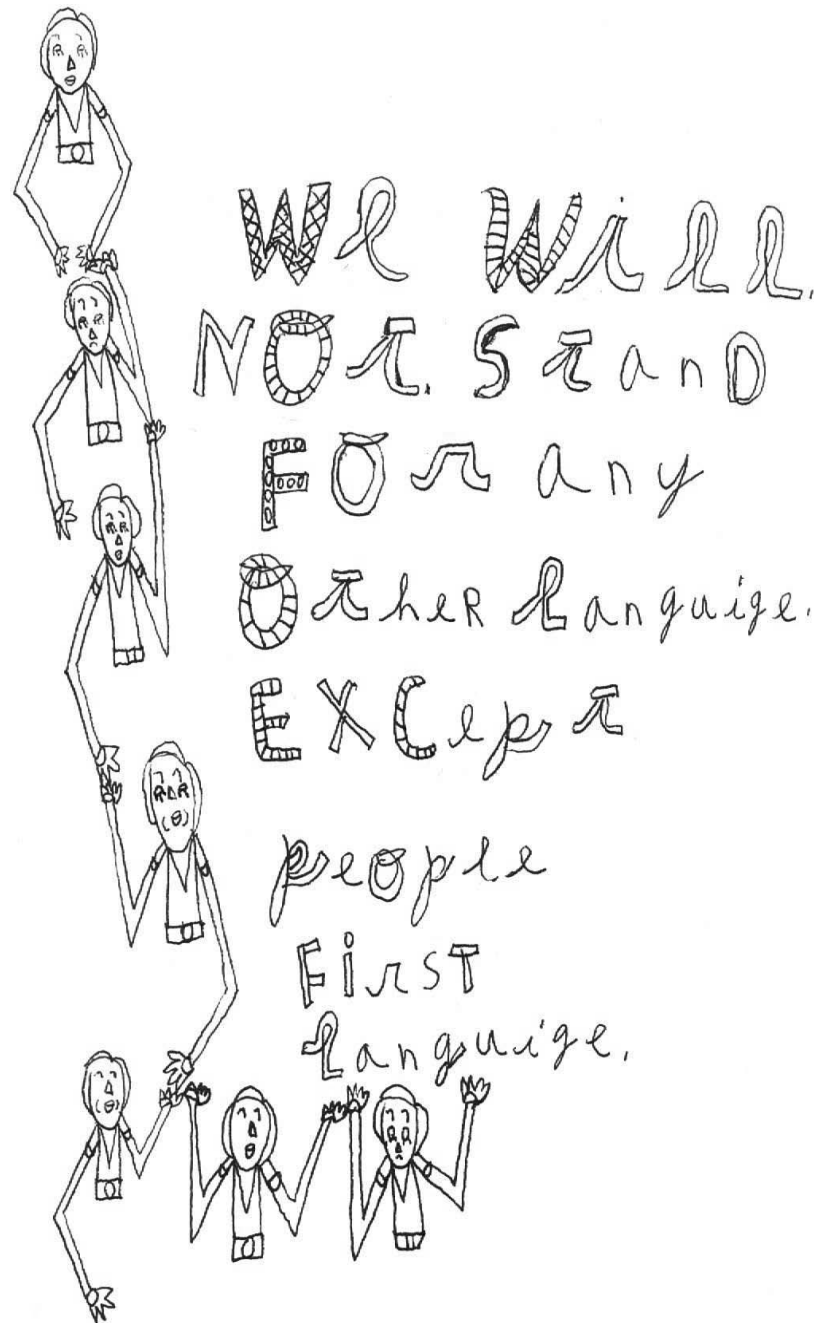 We Will.
NOT. StanD
FOr any
OtheR languige.
EXCept
people
FirST
languige.